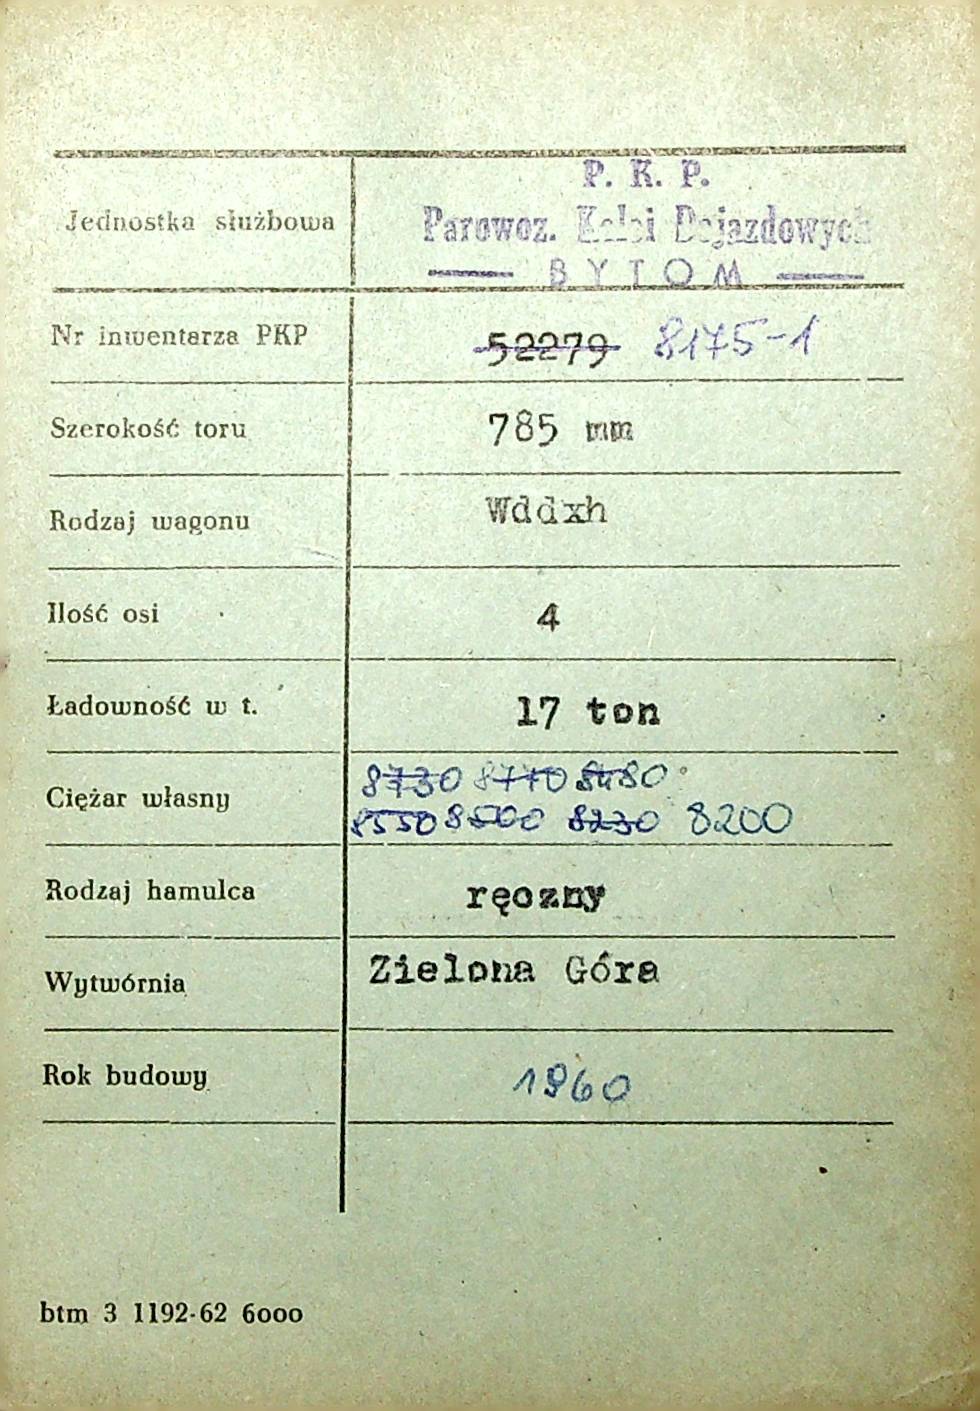 P. K. P.
Jednostka służbowa Parowoz. Kolei Dojazdowych
BYTOM
Nr inwentarza PKP 52279 8175-1
Szerokość toru 785 mm
Rodzaj wagonu Wddxh
Ilość osi 4
Ładowność w t. 17 ton
Ciężar własny 8730 8770 8480
8550 8500 8230 8200
Rodzaj hamulca ręczny
Wytwórnia Zielona Góra
Rok budowy 1960
btm 3 1192-62 6000